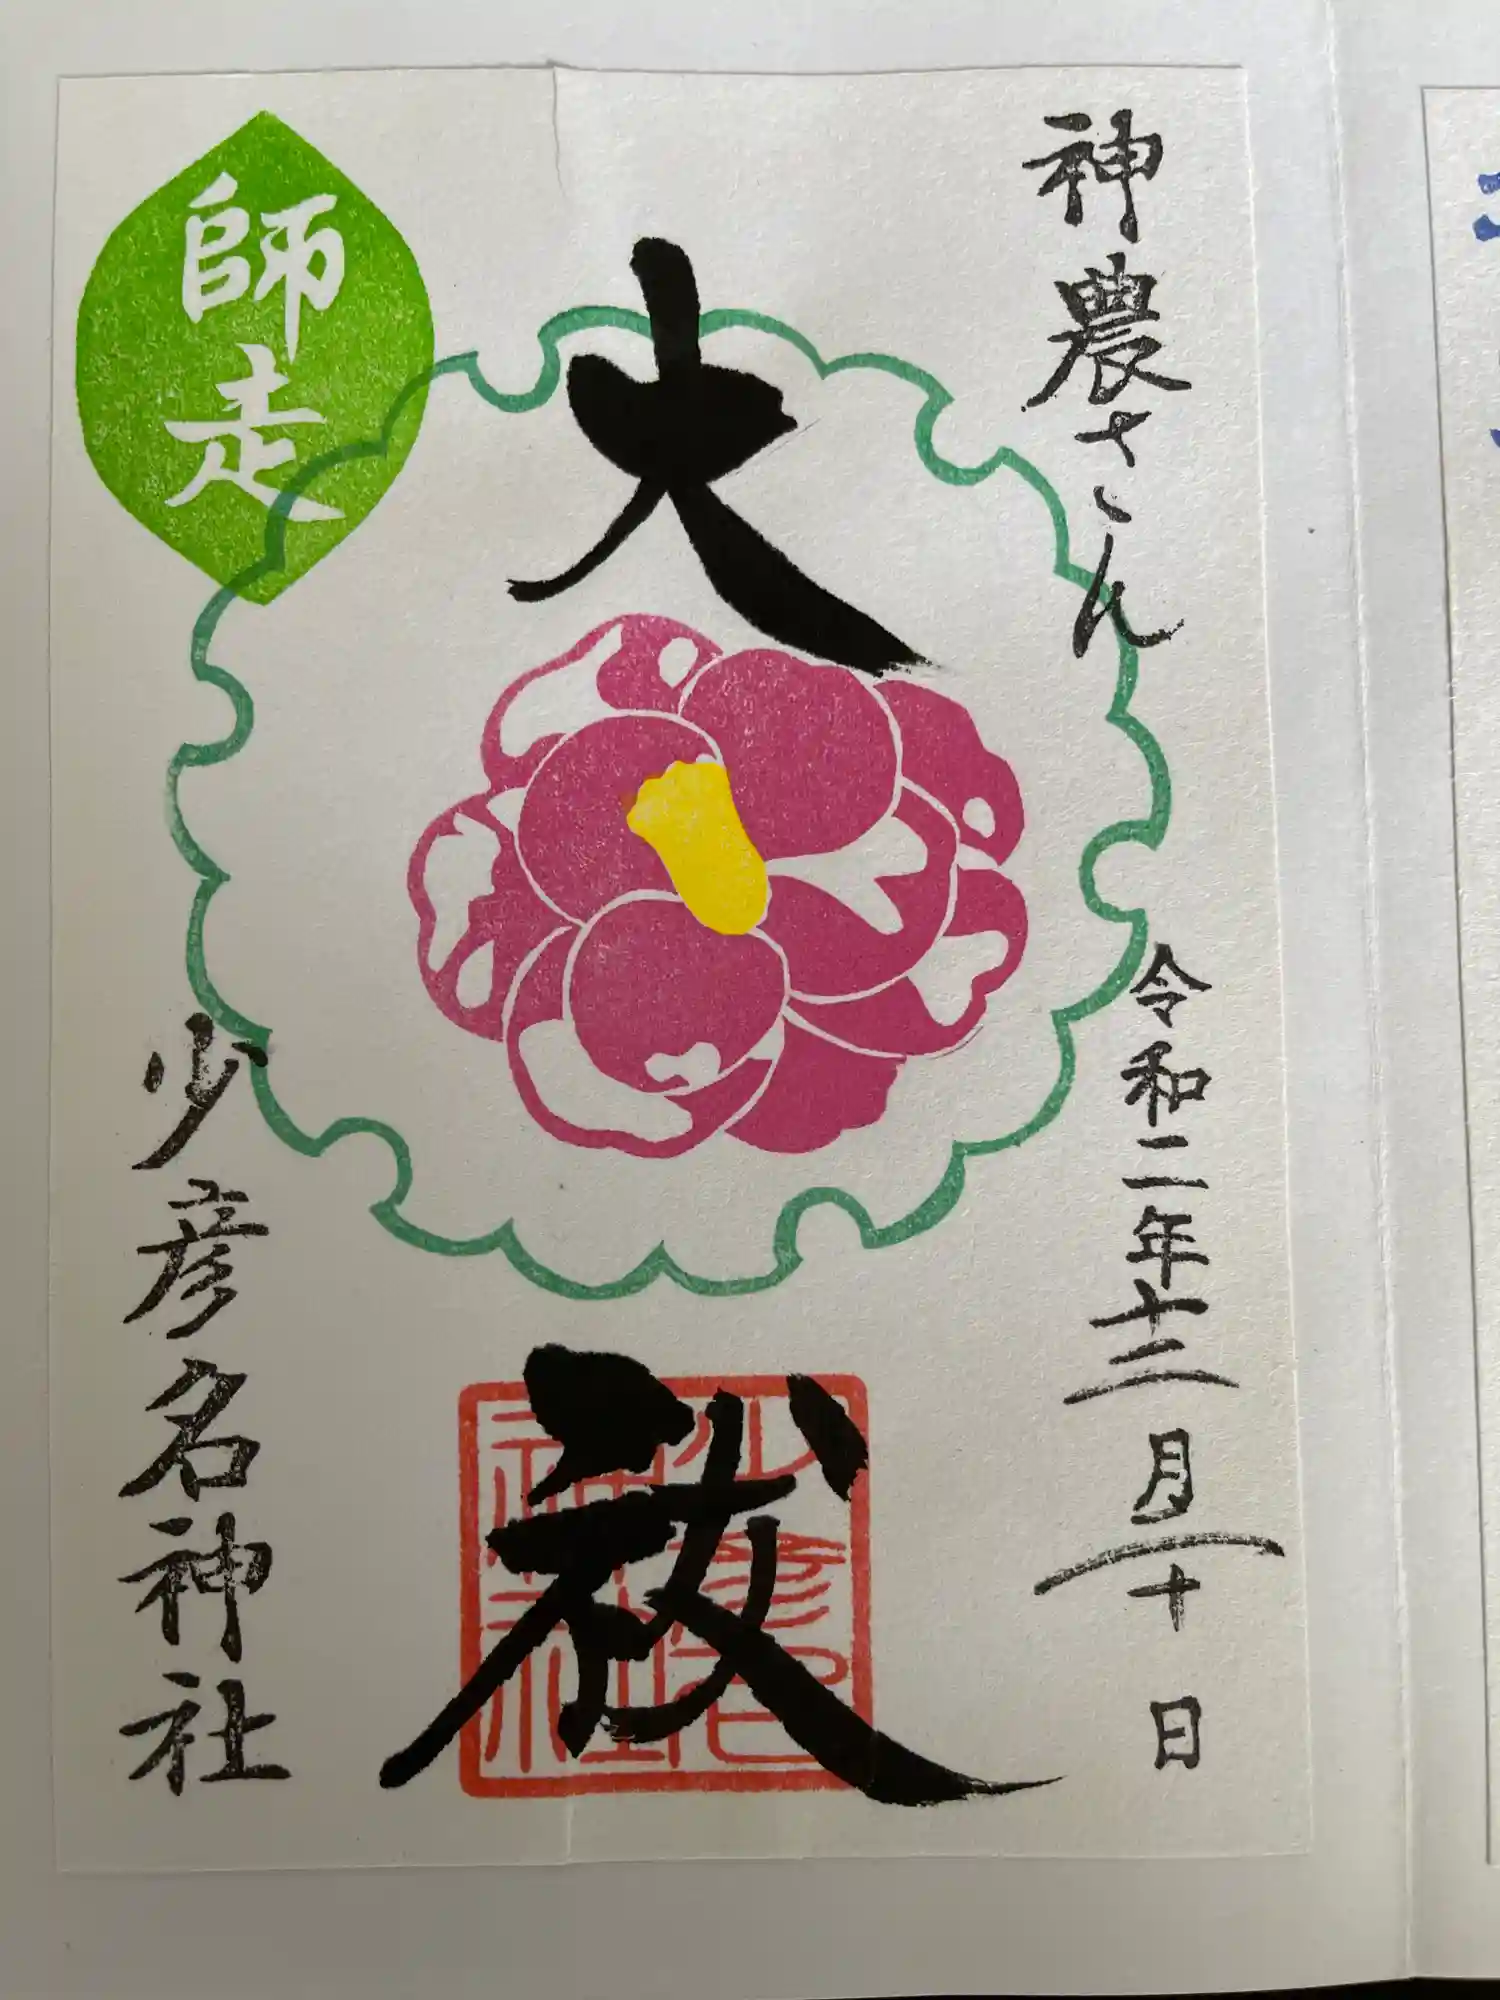 神農さん
令和二年十二月十日
大祓
少彦名神社
師走
少彦名神社